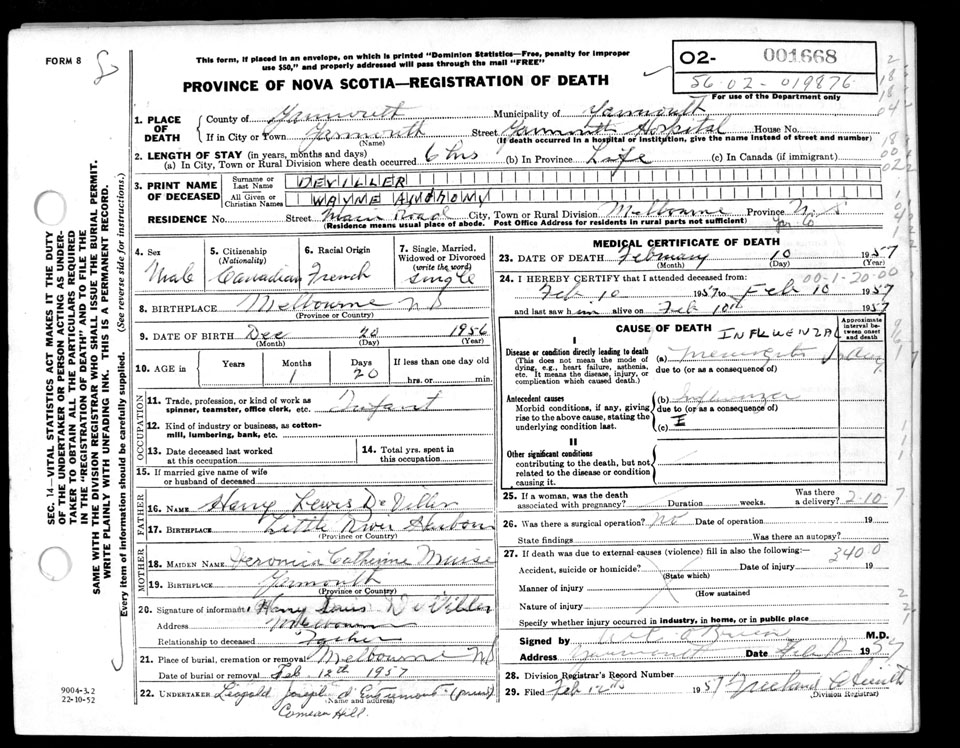 FORM 8
This form, if placed in an envelope, on which is printed "Dominion Statistics—Free, penalty for improper
use $50," and properly addressed will pass through the mail "FREE"
PROVINCE OF NOVA SCOTIA—REGISTRATION OF DEATH
02- 001668
56-02-019876
For use of the Department only
1. PLACE OF DEATH
County of Yarmouth Municipality of Yarmouth
If in City or Town Yarmouth Street Yarmouth Hospital House No.
(Name) (If death occurred in a hospital or institution, give the name instead of street and number)
2. LENGTH OF STAY (in years, months and days)
(a) In City, Town or Rural Division where death occurred 6 hrs (b) In Province Life (c) In Canada (if immigrant)
3. PRINT NAME OF DECEASED
Surname or Last Name DEVILLER
All Given or Christian Names WAYNE ANTHONY
RESIDENCE No. Street Main Road City, Town or Rural Division Melbourne Province N.S.
(Residence means usual place of abode. Post Office Address for residents in rural parts not sufficient) Yar Co
4. Sex Male
5. Citizenship (Nationality) Canadian
6. Racial Origin French
7. Single, Married, Widowed or Divorced (write the word) Single
8. BIRTHPLACE Melbourne NS
(Province or Country)
9. DATE OF BIRTH Dec 20 1956
(Month) (Day) (Year)
10. AGE in Years Months 1 Days 20 If less than one day old hrs. or min.
OCCUPATION
11. Trade, profession, or kind of work as spinner, teamster, office clerk, etc. Infant
12. Kind of industry or business, as cotton-mill, lumbering, bank, etc.
13. Date deceased last worked at this occupation
14. Total yrs. spent in this occupation
15. If married give name of wife or husband of deceased
FATHER
16. NAME Harry Lewis DeViller
17. BIRTHPLACE Little River Harbour
(Province or Country)
MOTHER
18. MAIDEN NAME Veronica Catherine Muise
19. BIRTHPLACE Yarmouth
(Province or Country)
20. Signature of informant Harry Louis DeViller
Address Melbourne
Relationship to deceased Father
21. Place of burial, cremation or removal Melbourne NS
Date of burial or removal Feb. 12th 1957
22. UNDERTAKER Leopold Joseph d'Entremont (priest)
(Name and address)
Comeau Hill.
MEDICAL CERTIFICATE OF DEATH
23. DATE OF DEATH February 10 1957
(Month) (Day) (Year)
00-1-20-00
24. I HEREBY CERTIFY that I attended deceased from:
Feb 10 1957 to Feb 10 1957
and last saw him alive on Feb 10th 1957
CAUSE OF DEATH INFLUENZAL
Approximate interval between onset and death
I
Disease or condition directly leading to death
(This does not mean the mode of dying, e.g., heart failure, asthenia, etc. It means the disease, injury, or complication which caused death.)
(a) Meningitis
due to (or as a consequence of)
Antecedent causes
Morbid conditions, if any, giving rise to the above cause, stating the underlying condition last.
(b) Influenza
due to (or as a consequence of)
(c)
II
Other significant conditions
contributing to the death, but not related to the disease or condition causing it.
25. If a woman, was the death associated with pregnancy? Duration weeks. Was there a delivery? 2-10-7
26. Was there a surgical operation? No Date of operation 19
State findings Was there an autopsy?
27. If death was due to external causes (violence) fill in also the following:— 340.0
Accident, suicide or homicide? Date of injury 19
(State which)
Manner of injury
(How sustained
Nature of injury
Specify whether injury occurred in industry, in home, or in public place
Signed by O'Brien M.D.
Address Yarmouth Date Feb 12 1957
28. Division Registrar's Record Number
29. Filed Feb 12th 1957
(Division Registrar)
SEC. 14—VITAL STATISTICS ACT MAKES IT THE DUTY
OF THE UNDERTAKER OR PERSON ACTING AS UNDER-
TAKER TO OBTAIN ALL THE PARTICULARS REQUIRED
IN THE "REGISTRATION OF DEATH" AND TO FILE THE
SAME WITH THE DIVISION REGISTRAR WHO SHALL ISSUE THE BURIAL PERMIT.
WRITE PLAINLY WITH UNFADING INK. THIS IS A PERMANENT RECORD.
Every item of information should be carefully supplied. (See reverse side for instructions.)
9004-3.2
22-10-52